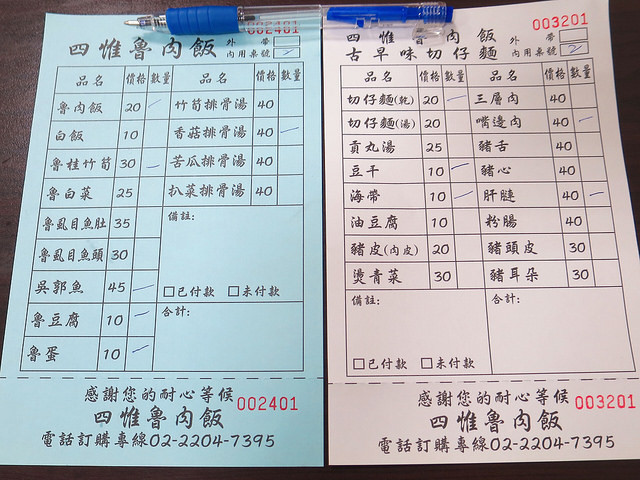 002401
四惟魯肉飯 外帶
內用桌號
品名 價格 數量 品名 價格 數量
魯肉飯 20 竹筍排骨湯 40
白飯 10 香菇排骨湯 40
魯桂竹筍 30 苦瓜排骨湯 40
魯白菜 25 扒菜排骨湯 40
魯虱目魚肚 35 備註:
魯虱目魚頭 30
吳郭魚 45 □已付款 □未付款
魯豆腐 10 合計:
魯蛋 10
感謝您的耐心等候
002401
四惟魯肉飯
電話訂購專線02-2204-7395
003201
四惟魯肉飯 外帶
古早味切仔麵 內用桌號 2
品名 價格 數量 品名 價格 數量
切仔麵(乾) 20 三層肉 40
切仔麵(湯) 20 嘴邊肉 40
貢丸湯 25 豬舌 40
豆干 10 豬心 40
海帶 10 肝腱 40
油豆腐 10 粉腸 40
豬皮(肉皮) 20 豬頭皮 30
燙青菜 30 豬耳朵 30
備註: 合計:
□已付款 □未付款
感謝您的耐心等候
003201
四惟魯肉飯
電話訂購專線02-2204-7395